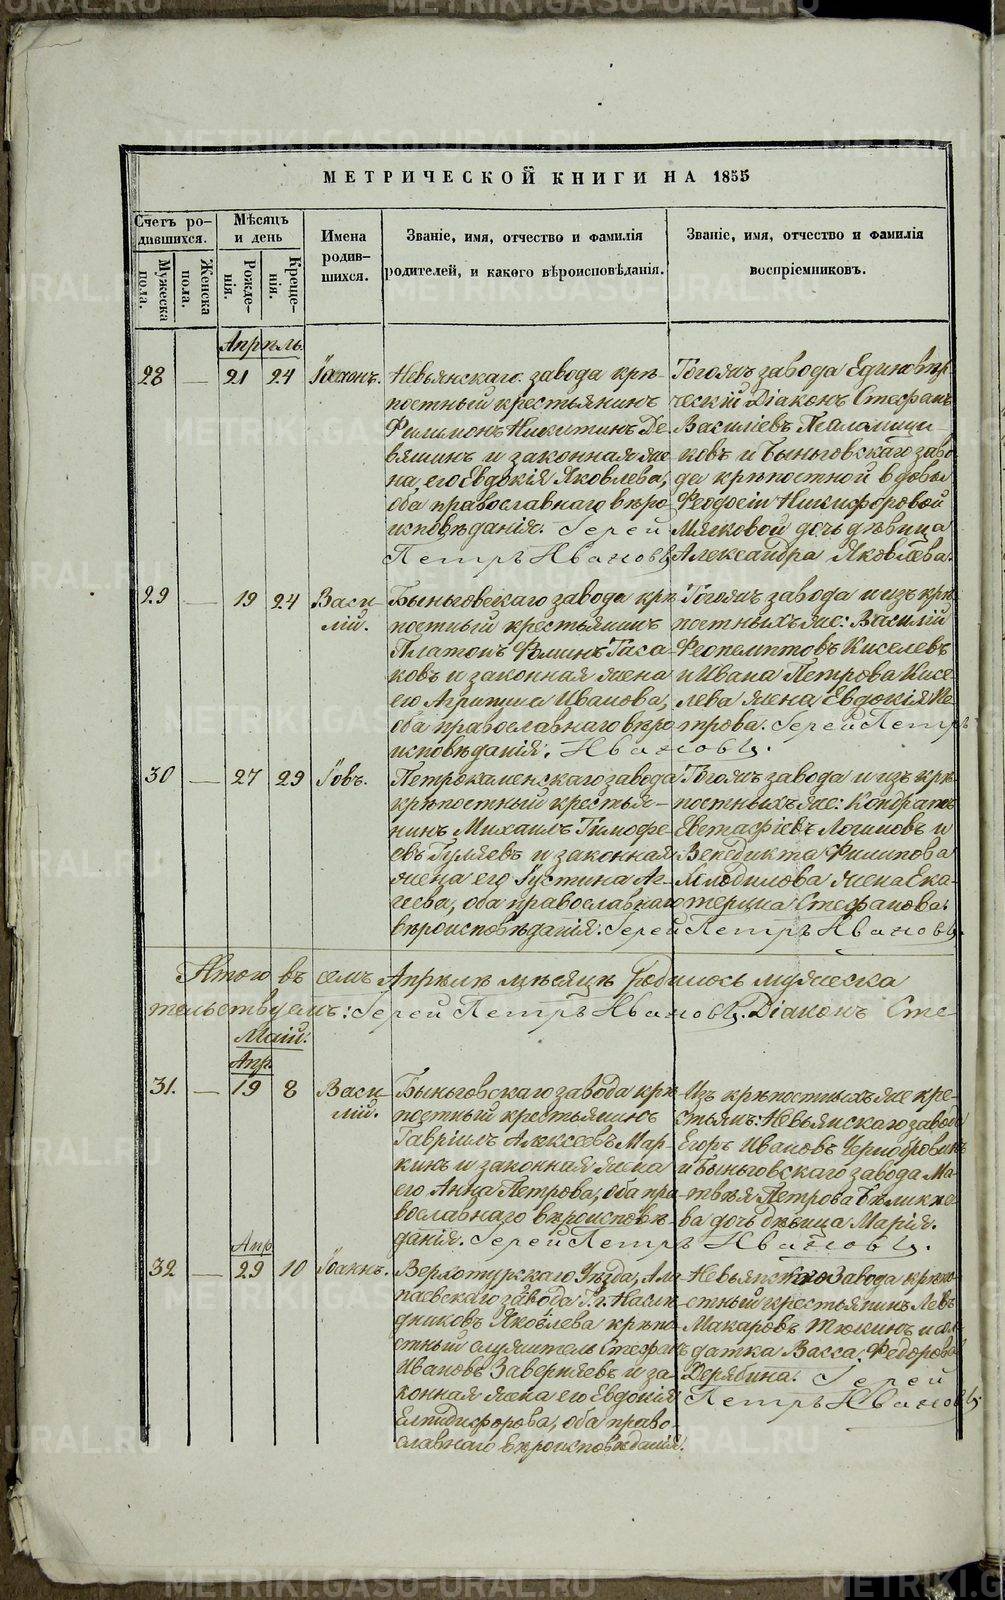 МЕТРИЧЕСКОЙ КНИГИ НА 1855
Счетъ ро-
дившихся.
Мужеска пола.
Женска пола.
Мѣсяцъ
и день
Рожде-
нія.
Креще-
нія.
Имена
родив-
шихся.
Званіе, имя, отчество и фамилія
родителей, и какого вѣроисповѣданія.
Званіе, имя, отчество и фамилія
воспріемниковъ.
Апрѣль.
28 — 21 24
Невьянскаго завода крѣ-
постный крестьянинъ
Филимонъ Никитинъ Де-
вяшинъ и законная же-
на его Евдокія Яковлева,
оба православнаго вѣро-
исповѣданія. Іерей
Петръ Ивановъ
Тогожъ завода Единовѣр-
ческій Діаконъ Стефанъ
Василіевъ
ковъ и Быньговскаго заво-
да крѣпостной вдовы
Феодосіи Никифоровой
Мягковой дочь дѣвица
Александра Яковлева.
29 — 19 24 Васи-
лій.
Быньговскаго завода крѣ-
постный крестьянинъ
Платонъ Фоминъ Гаса-
ковъ и законная жена
его Агрипина Иванова,
оба православнаго вѣро-
исповѣданія. Ивановъ.
Тогожъ завода и изъ крѣ-
постныхъ же: Василій
Феопемптовъ Киселевъ
и Ивана Петрова Кисе-
лева жена Евдокія Пе-
трова. Іерей Петръ
30 — 27 29 Іовъ.
Петрокаменскаго завода
крѣпостный крестья-
нинъ Михаилъ Тимофе-
евъ Гуляевъ и законная
жена его Іустина Аг-
геева, оба православнаго
вѣроисповѣданія. Іерей Петръ Ивановъ.
Тогожъ завода и изъ крѣ-
постныхъ же: Кондратъ
Евстафіевъ Логиновъ и
Венедикта Филипова
жена Ека-
терина Стефанова.
Итого въ семъ Апрѣлѣ мѣсяцѣ родилось мужеска
тельствуемъ: Іерей Петръ Ивановъ. Діаконъ Сте-
Маій.
Апр.
31. — 19 8 Васи-
лій.
Быньговскаго завода крѣ-
постный крестьянинъ
Гавріилъ Алексеевъ Мар-
кинъ и законная жена
его Анна Петрова, оба пра-
вославнаго вѣроисповѣ-
данія. Іерей Петръ Ивановъ.
Изъ крѣпостныхъ же кре-
стьянъ: Невьянскаго завода
Егоръ Ивановъ Чернобровинъ
и Быньговскаго завода Ма-
твѣя Петрова Бѣлико-
ва дочь дѣвица Марія.
Апр.
32 — 29 10 Іоаннъ.
Верхотурскаго Уѣзда, Ала-
паевскаго завода Гг. Наслѣ-
дниковъ Яковлева крѣпо-
стный служитель Стефанъ
Ивановъ Заверняевъ и за-
конная жена его Евдокія
Елпидифорова, оба право-
славнаго вѣроисповѣданія.
Невьянскаго Завода крѣпо-
стный крестьянинъ Левъ
Макаровъ Тюкинъ и сол-
датка Васса Федорова
Дерябина. Іерей
Петръ Ивановъ
METRIKI.GASO-URAL.RU